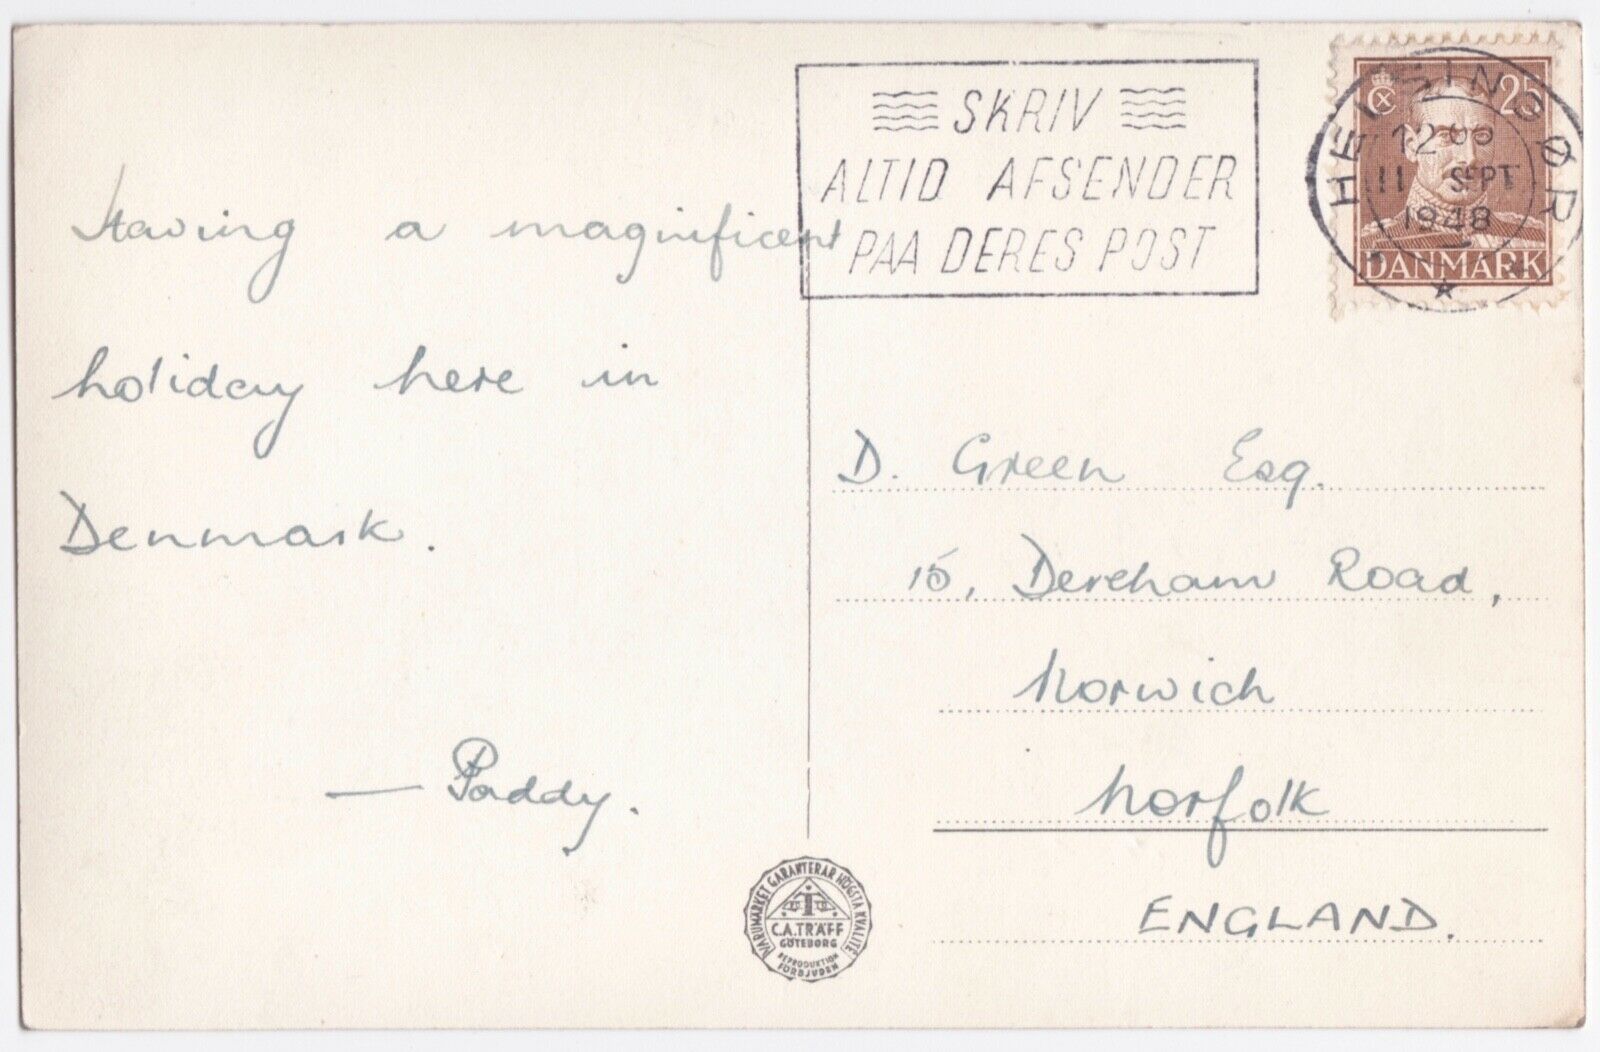 SKRIV
ALTID AFSENDER
PAA DERES POST
HELSINGØR
12
11 SEPT
1948
25
CX
DANMARK
Having a magnificent
holiday here in
Denmark.
— Paddy.
D. Green Esq.
15, Dereham Road,
Norwich
Norfolk
ENGLAND.
VARUMÄRKET GARANTERAR HÖGSTA KVALITÉ
C.A. TRÄFF
GÖTEBORG
REPRODUKTION
FÖRBJUDEN